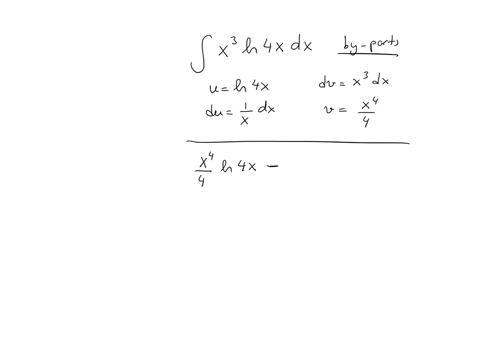 ∫ x³ ln 4x dx by-parts
u = ln 4x dv = x³ dx
du = 1/x dx v = x⁴/4
x⁴/4 ln 4x −